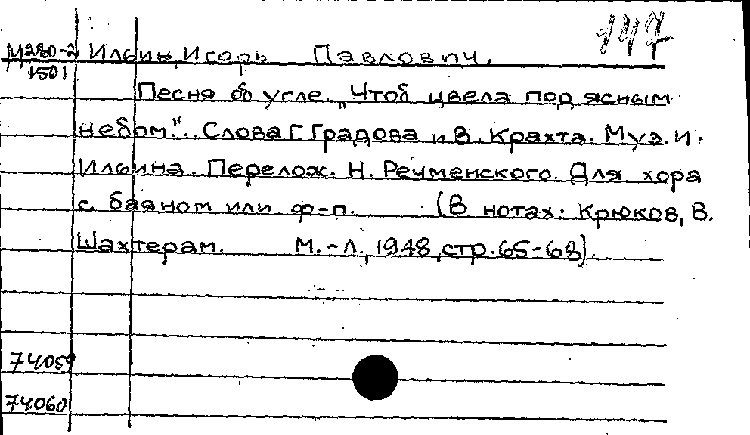 147
М280-2 Ильин, Игорь Павлович.
1501
Песня об угле. "Чтоб цвела под ясным
небом". Слова Г. Градова и В. Крахта. Муз. И.
Ильина. Перелож. Н. Речменского. Для хора
с баяном или ф-п. (В нотах: Крюков, В.
Шахтерам. М.-Л., 1948, стр. 65-68).
74059
74060